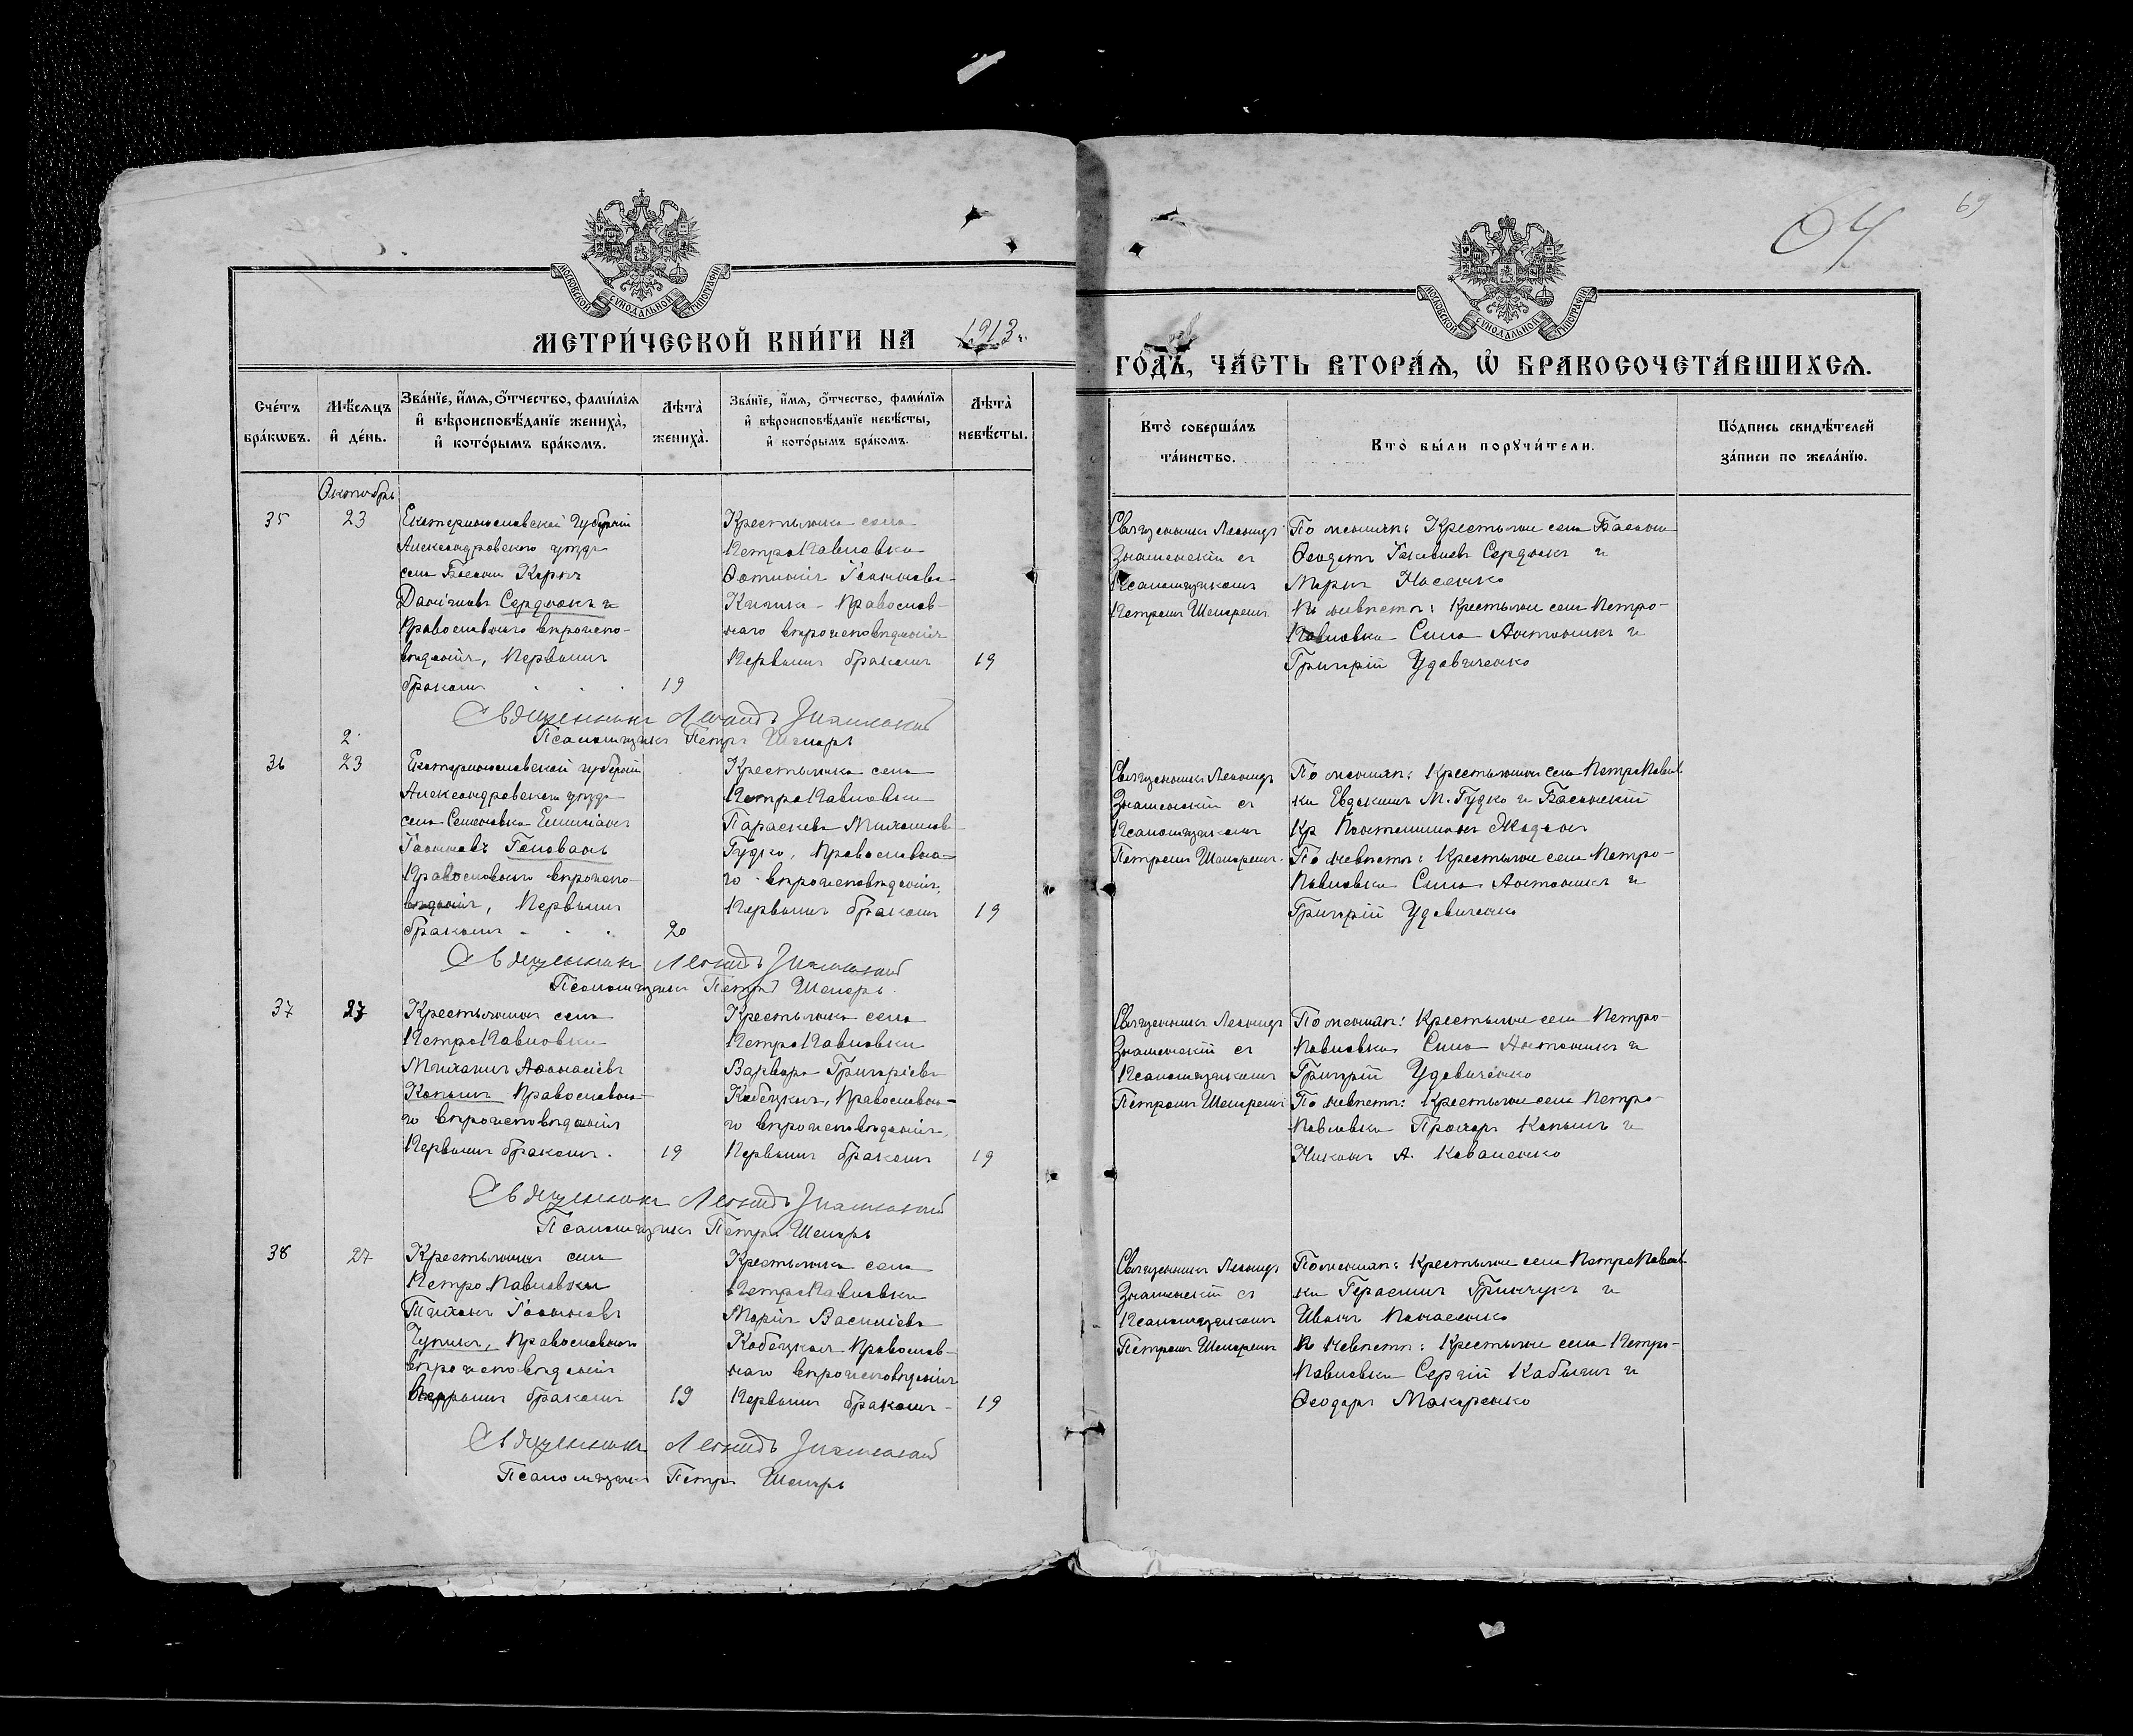 64
69
МОСКОВСКОЙ СУНОДАЛЬНОЙ ТИПОГРАФІИ
МОСКОВСКОЙ СУНОДАЛЬНОЙ ТИПОГРАФІИ
МЕТРИ́ЧЕСКОЙ КНИ́ГИ НА 1913 г.
ГО́ДЪ, ЧА́СТЬ ВТОРА́Ѧ, Ѡ҆ БРАКОСОЧЕТА́ВШИХСѦ.
Сче́тъ бра́кѡвъ.
Мѣ́сяцъ и҆ де́нь.
Зва́нїе, и҆́мѧ, ѻ҆́тчество, фами́лїѧ
и҆ вѣроисповѣ́данїе жениха̀,
и҆ кото́рымъ бра́комъ.
Лѣта̀ жениха̀.
Зва́нїе, и҆́мѧ, ѻ҆́тчество, фами́лїѧ
и҆ вѣроисповѣ́данїе невѣ́сты,
и҆ кото́рымъ бра́комъ.
Лѣта̀ невѣ́сты.
Кто̀ соверша́лъ та́инство.
Кто̀ бы́ли порꙋчи́тели.
По́дпись свидѣ́телей за́писи по жела́нїю.
Октябрь
35
23
Екатеринославской губерніи
Александровскаго уѣзда
села Басани
Сердюкъ и
Православнаго вѣроиспо-
вѣданія, Первымъ
бракомъ
19
Крестьянка села
ПетроПавловки
Фотинія Іоаннова
Православ-
наго вѣроисповѣданія
Первымъ бракомъ
19
Священникъ Леонидъ
Знаменскій съ
Псаломщикомъ
Петромъ
По женихѣ: Крестьяне села Басани
Феодотъ Сердюкъ и
Носенко
По невѣстѣ: Крестьяне села Петро-
Павловки Сила Антоникъ и
Григорій Удовиченко
Священникъ Леонидъ Знаменскій
Псаломщикъ Петръ
2
36
23
Екатеринославской губерніи
Александровскаго уѣзда
села Семеновка Емиліанъ
Іоанновъ Головань
Православнаго вѣроиспо-
вѣданія, Первымъ
бракомъ
20
Крестьянка села
ПетроПавловки
Параскева Михаилов-
Гудко, Православна-
го вѣроисповѣданія,
Первымъ бракомъ
19
Священникъ Леонидъ
Знаменскій съ
Псаломщикомъ
Петромъ
По женихѣ: Крестьянинъ села ПетроПавлов
ки Евдокимъ М. Гудко и Басанскій
Кр Пантелимонъ Жаданъ
По невѣстѣ: Крестьяне села Петро-
Павловки Сила Антоникъ и
Григорій Удовиченко
Священникъ Леонидъ Знаменскій
Псаломщикъ Петръ
37
27
Крестьянинъ села
ПетроПавловки
Михаилъ Афанасіевъ
Копылъ Православна-
го вѣроисповѣданія
Первымъ бракомъ.
19
Крестьянка села
ПетроПавловки
Варвара Григоріева
Кобецкая, Православна-
го вѣроисповѣданія,
Первымъ бракомъ
19
Священникъ Леонидъ
Знаменскій съ
Псаломщикомъ
Петромъ
По женихѣ: Крестьяне села Петро-
Павловка Сила Антоникъ и
Григорій Удовиченко
По невѣстѣ: Крестьяне села Петро-
Павловки Прохоръ Копылъ и
Никонъ А. Коваленко
Священникъ Леонидъ Знаменскій
Псаломщикъ Петръ
38
27
Крестьянинъ села
ПетроПавловки
Тихонъ Іоанновъ
Православнаго
вѣроисповѣданія
Первымъ бракомъ
19
Крестьянка села
ПетроПавловки
Марія Василіева
Кобецкая Православ-
наго вѣроисповѣданія
Первымъ бракомъ
19
Священникъ Леонидъ
Знаменскій съ
Псаломщикомъ
Петромъ
По женихѣ: Крестьяне села ПетроПавлов
ки Герасимъ Гринчукъ и
Иванъ Панасенко
По невѣстѣ: Крестьяне села Петро-
Павловки Сергій и
Феодоръ Макаренко
Священникъ Леонидъ Знаменскій
Псаломщикъ Петръ